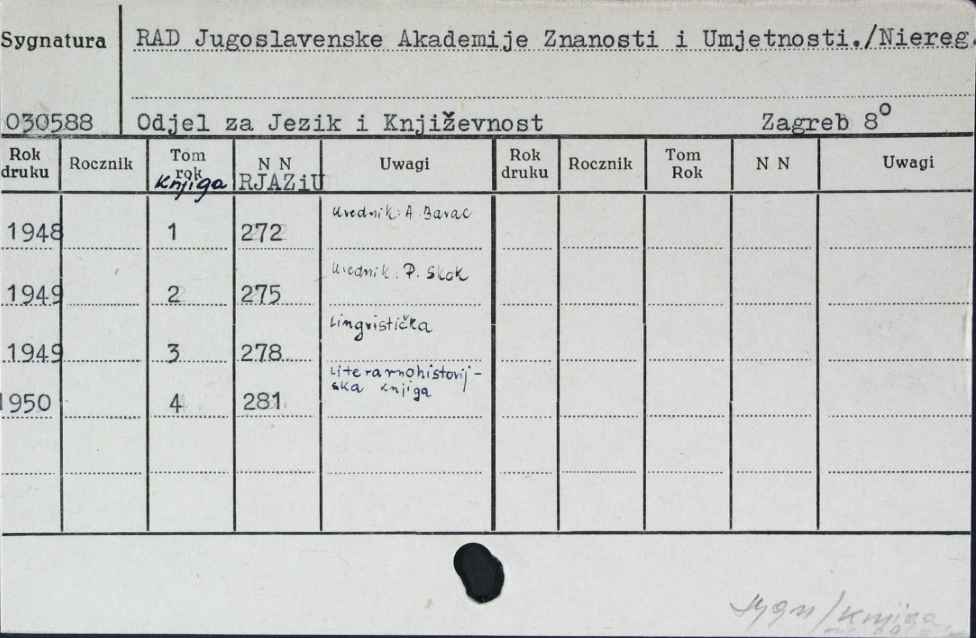 Sygnatura RAD Jugoslavenske Akademije Znanosti i Umjetnosti./Niereg.
030588 Odjel za Jezik i Književnost Zagreb 8º
Rok druku Rocznik Tom rok knjiga N N RJAZiU Uwagi Rok druku Rocznik Tom Rok N N Uwagi
1948 1 272 Urednik: A. Barac
1949 2 275 Urednik: P. Skok
1949 3 278 Lingvistička
1950 4 281 Literarnohistorij-
ska knjiga
Sygn/knjiga